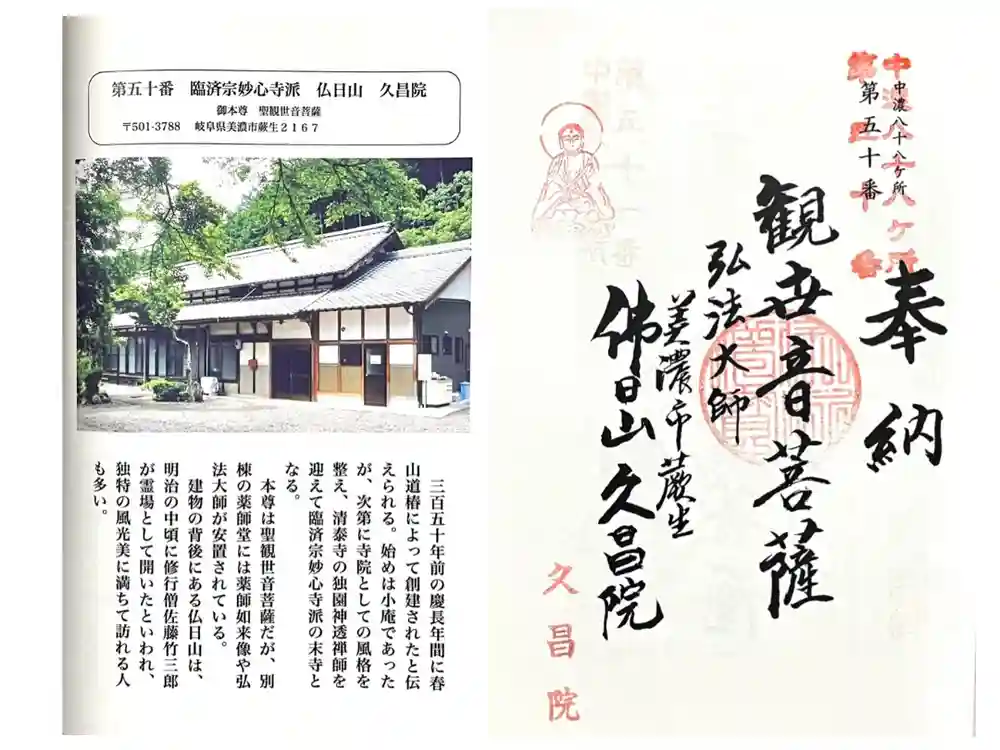 第五十番　臨済宗妙心寺派　仏日山　久昌院
御本尊　聖観世音菩薩
〒501-3788　岐阜県美濃市蕨生２１６７
三百五十年前の慶長年間に春
山道椿によって創建されたと伝
えられる。始めは小庵であった
が、次第に寺院としての風格を
整え、清泰寺の独園神透禅師を
迎えて臨済宗妙心寺派の末寺と
なる。
本尊は聖観世音菩薩だが、別
棟の薬師堂には薬師如来像や弘
法大師が安置されている。
建物の背後にある仏日山は、
明治の中頃に修行僧佐藤竹三郎
が霊場として開いたといわれ、
独特の風光美に満ちて訪れる人
も多い。
中濃八十八ヶ所
第五十番
中濃八十八ヶ所
第五十番
奉納
観世音菩薩
弘法大師
美濃市蕨生
佛日山久昌院
久昌院